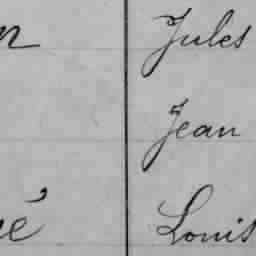 n Jules
Jean
é Louis